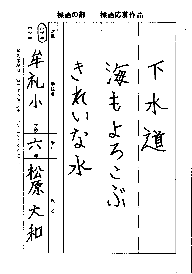 標語の部　標語応募作品
下水道
海もよろこぶ
きれいな水
牟礼小
六
松原大和